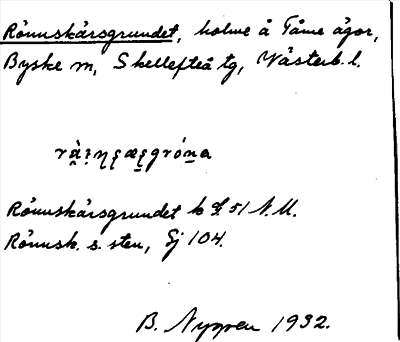 Rönnskärsgrundet, holme å Tåme ägor,
Byske sn, Skellefteå tg, Västerb. l.
Rönnskärsgrundet k 51 N.V.
Rönnsk. s. sten, Sj 104.
B. Nygren 1932.